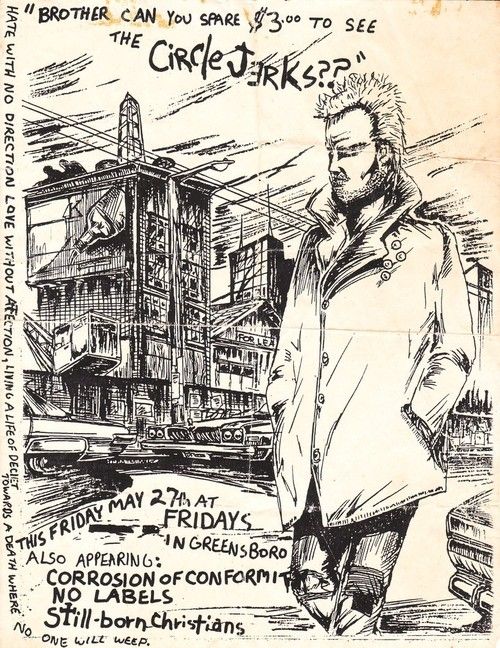 "BROTHER CAN YOU SPARE $3.00 TO SEE
THE CIRCLE JERKS??"
HATE WITH NO DIRECTION LOVE WITHOUT AFFECTION, LIVING A LIFE OF DECIET
TOWARDS A DEATH WHERE
NO ONE WILL WEEP.
FOR LEA
THIS FRIDAY MAY 27th AT
FRIDAYS
IN GREENSBORO
ALSO APPEARING:
CORROSION OF CONFORMIT
NO LABELS
Still-born Christians